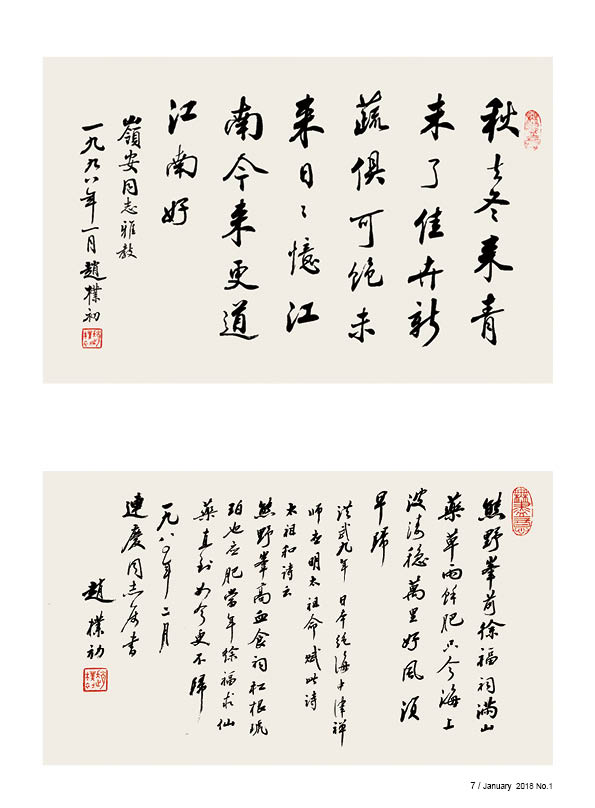 秋去冬来青
未了佳卉新
蔬俱可绝未
来日々憶江
南今来更道
江南好
嶺安同志雅教
一九九八年一月趙樸初
熊野峯前徐福祠满山
藥草雨餘肥只今海上
波涛穩萬里好風須
早歸
洪武九年日本绝海中津禅
师应明太祖命賦此诗
太祖和诗云
熊野峯高血食祠松根琥
珀也应肥當年徐福求仙
藥直到如今更不歸
一九八〇年二月
連慶同志属書
趙樸初
7 / January 2018 No.1